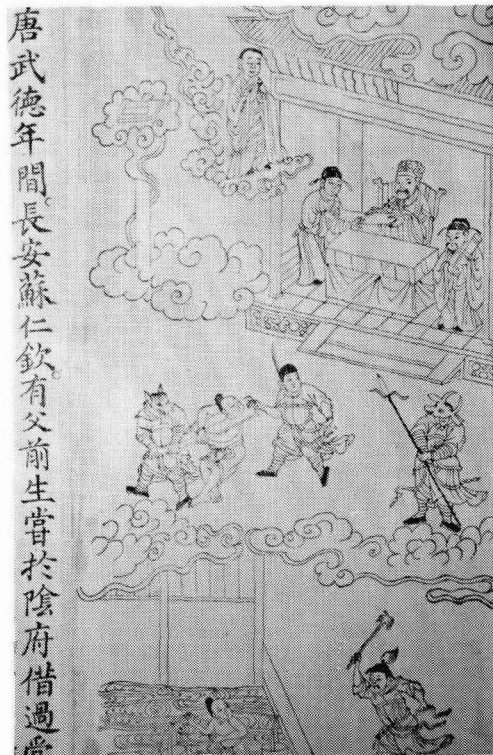 唐武德年間。長安蘇仁欽。有父前生嘗扵陰府借過